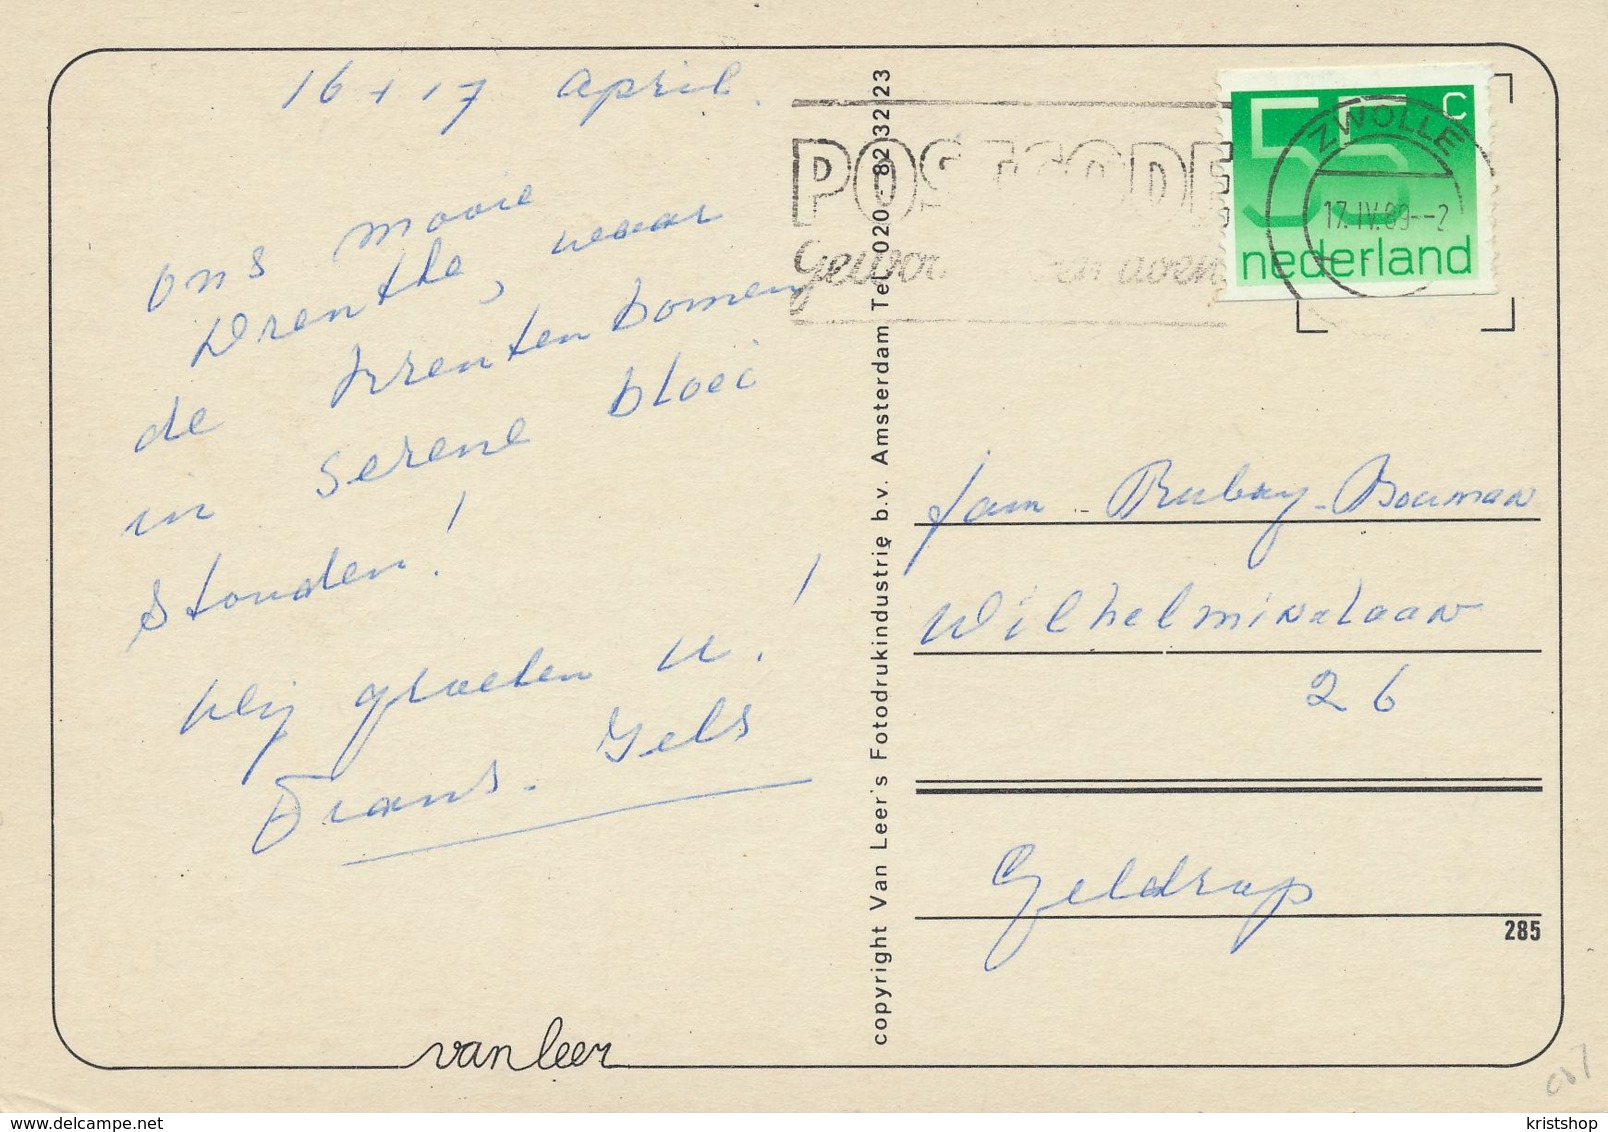 16 + 17 april.
ons mooie
Drenthe, waar
de krentenbomen
in serene bloei
stonden!
Wij groeten u!
Frans. Jels
van leer
copyright Van Leer's Fotodrukindustrie b.v. Amsterdam Tel. 020 - 82 32 23
POSTCODE
gewoon even doen
55 c
nederland
ZWOLLE
17.IV.89--2
fam - Bouman
Wilhelminalaan
26
Geldrop
285
kristshop